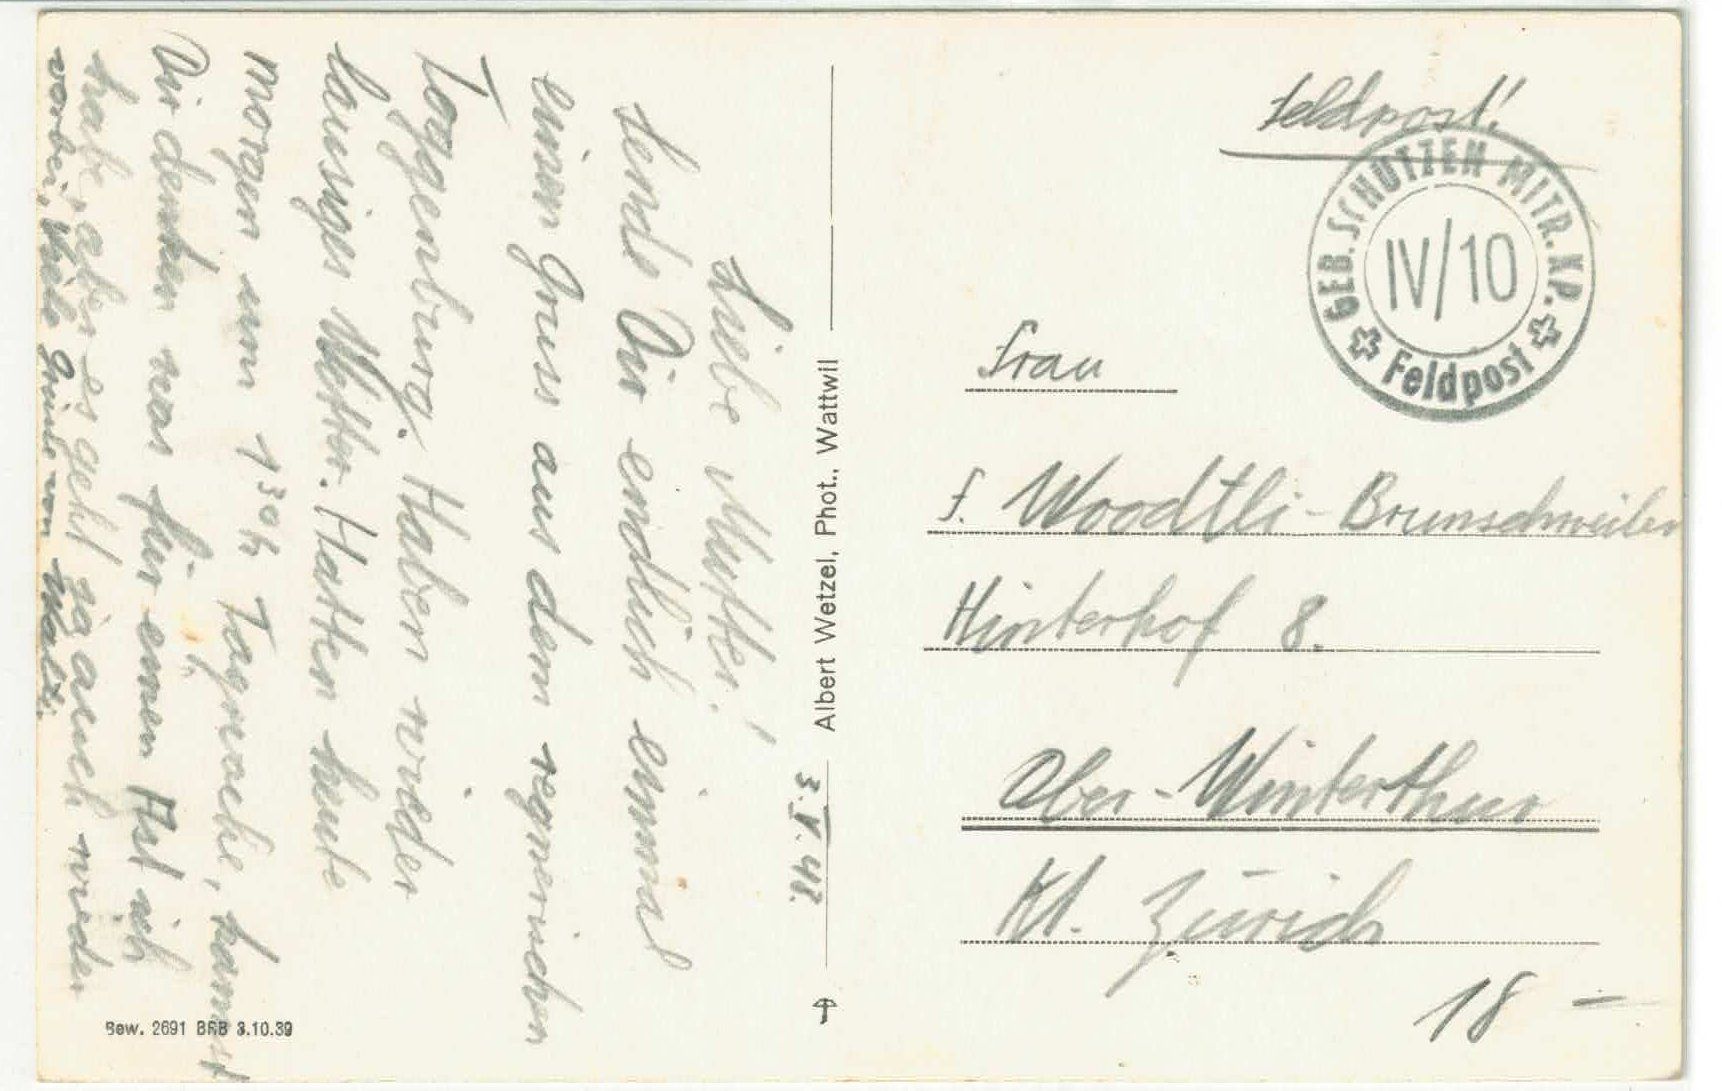 Feldpost!
GEB. SCHÜTZEN MITR. KP.
IV/10
Feldpost
Frau
F. Woodtli-Brunschweiler
Hinterhof 8.
Ober-Winterthur
Kt. Zürich
18 –
Albert Wetzel, Phot., Wattwil
3.V.42.
Liebe Mutter!
Sende Dir endlich einmal
einen Gruss aus dem regnerischen
Toggenburg. Haben wieder
lausiges Wetter. Hatten heute
morgen um 1 30h Tagwache, kannst
Dir denken was für einen Ast ich
habe, aber es geht ja auch wieder
vorbei, Viele Grüsse von Walti.
Bew. 2691 BRB 3.10.39